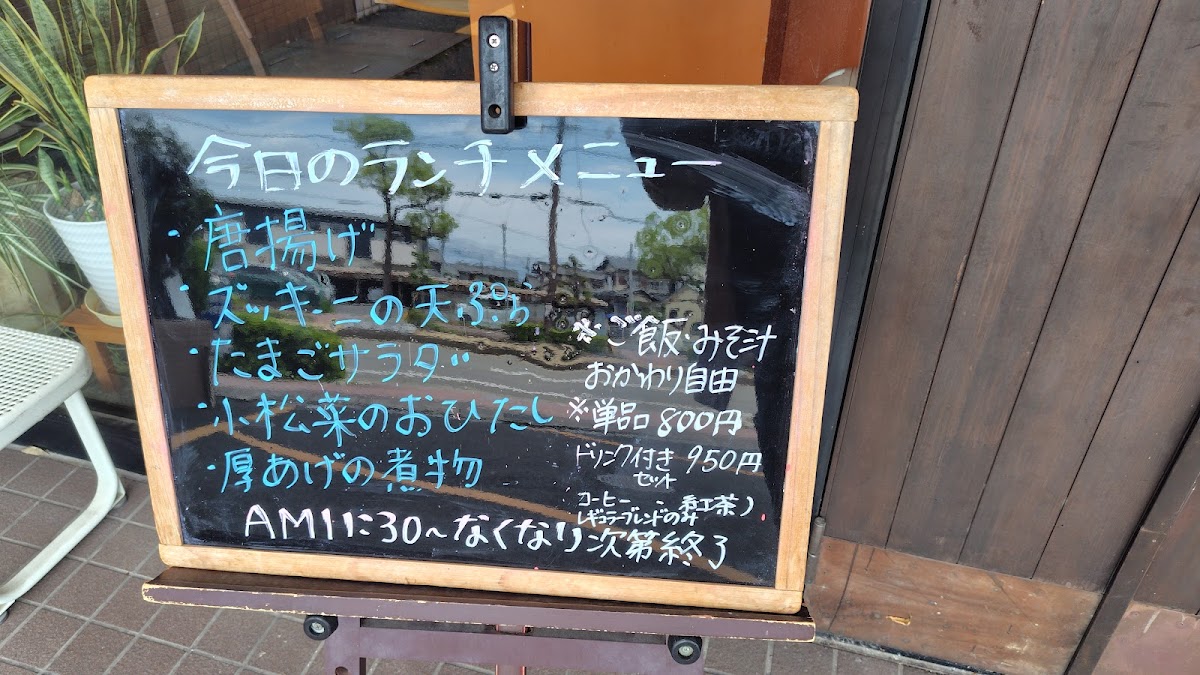 今日のランチメニュー
・唐揚げ
・ズッキーニの天ぷら
・たまごサラダ
・小松菜のおひたし
・厚あげの煮物
※ご飯・みそ汁
おかわり自由
※単品800円
ドリンク付き 950円
セット
コーヒー - 紅茶)
レギュラーブレンドのみ
AM11:30〜なくなり次第終了